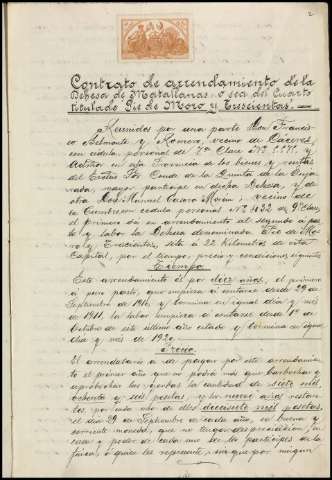 2
Contrato de arrendamiento de la
Dehesa de Matallanas, o sea del Cuarto
titulado Pie de Moro y Trescientas.
Reunidos por una parte Don Francis-
co Belmonte y Romero, vecino de Cáceres,
con cédula personal de 7ª Clase
en esta Provincia de los bienes y rentas
del Conde de la Quinta de la Enja-
rada, mayor participe en dicha Dehesa, y de
otra Don Manuel vecino de
la Cumbre con cédula personal Nº 422 de 9ª Clase,
el primero da en arrendamiento al segundo a pas-
to y labor la Dehesa denominada Pie de Mo-
ro y Trescientas, sita á 22 Kilómetros de esta
Capital, por el tiempo, precio y condiciones siguientes
Tiempo
Este arrendamiento es por diez años, el primero
á puro pasto, que empieza á contarse desde 29 de
Septiembre de 1910, y termina en igual dia y mes
de 1911, la labor empieza á contarse desde 1º de
Octubre de este último año citado y termina en igual
dia y mes de 1920
Precio
El arrendatario á de pagar por este arrendamien-
to el primer año que no podrá mas que barbechar y
aprovechar las yerbas la cantidad de siete mil
ochenta y seis pesetas, y los nueve años restan-
tes, por cada uno de ellos diecisiete mil pesetas,
el dia 29 de Septiembre de cada año, en buena y
corriente moneda, que no tenga depreciación, en
casa y poder de cada uno de los participes de la
finca, ó quien les represente, sin que por ningun